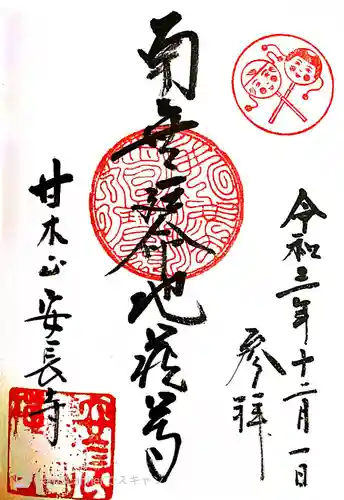 令和三年十二月一日
参拝
南無延命地蔵尊
甘木山安長寺